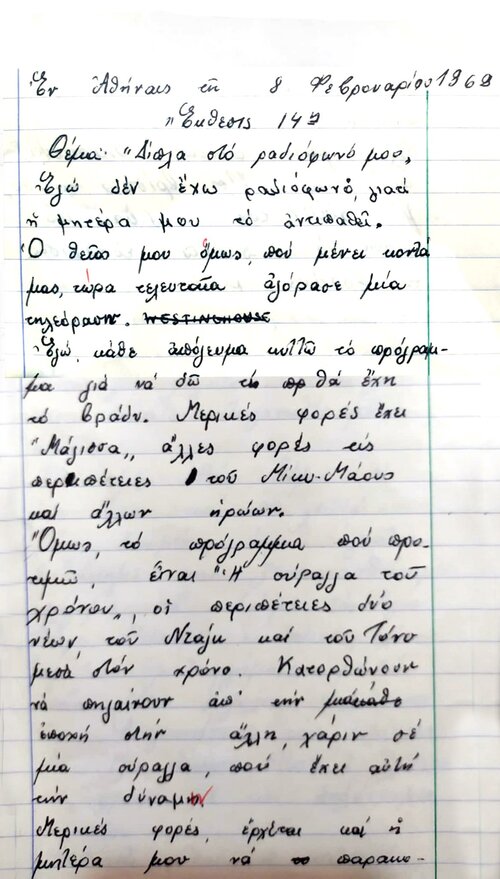 Ἐν Ἀθήναις τῇ 8 Φεβρουαρίου 1969
"Ἔκθεσις 14η
Θέμα: "Δίπλα στό ραδιόφωνό μου„
Ἐγώ δέν ἔχω ραδιόφωνο, γιατί
ἡ μητέρα μου τό ἀντιπαθεῖ.
Ὁ θεῖος μου ὅμως, πού μένει κοντά
μας, τώρα τελευταῖα ἀγόρασε μία
τηλεόραση. WESTINGHOUSE
Ἐγώ, κάθε ἀπόγευμα κυττῶ τό πρόγραμ-
μα γιά νά δῶ τί πρ θά ἔχη
τό βράδυ. Μερικές φορές ἔχει
"Μάγισσα„, ἄλλες φορές τίς
περιπέτειες τοῦ Μίκυ-Μάους
καί ἄλλων ἡρώων.
Ὅμως, τό πρόγραμμα πού προ-
τιμῶ, εἶναι "Ἡ σύραγγα τοῦ
χρόνου„, οἱ περιπέτειες δύο
νέων, τοῦ Νταγκ καί τοῦ Τόνυ
μεσα στόν χρόνο. Κατορθώνουν
νά πηγαίνουν ἀπ' τήν
ἐποχή στήν ἄλλη, χάριν σέ
μία σύραγγα, πού ἔχει αὐτή
τήν δύναμη
Μερικές φορές, ἔρχεται καί ἡ
μητέρα μου νά παρακο-